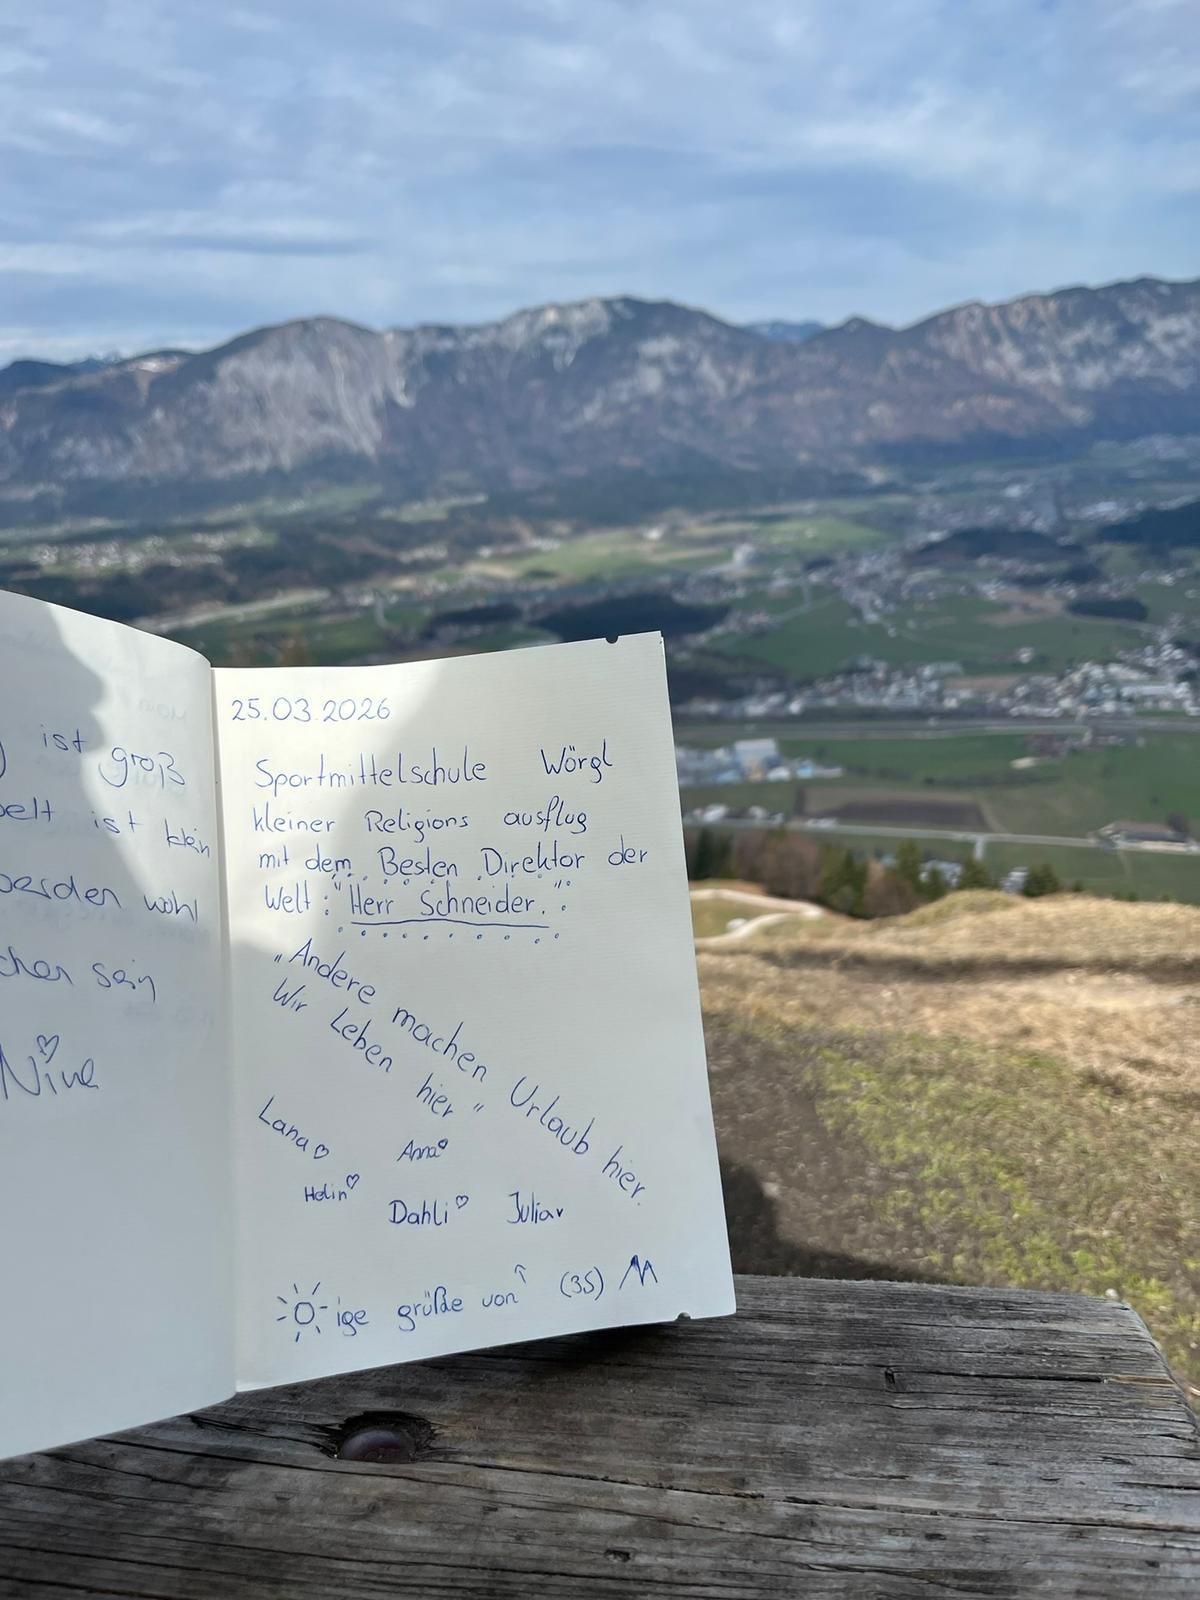 ist groß
ist klein
werden wohl
sein
Nina
25.03.2026
Sportmittelschule Wörgl
kleiner Religions ausflug
mit dem Besten Direktor der
Welt: "Herr Schneider."
„Andere machen Urlaub hier
Wir Leben hier"
Lana Anna
Helin
Dahli Julian
ige grüße von (3S)